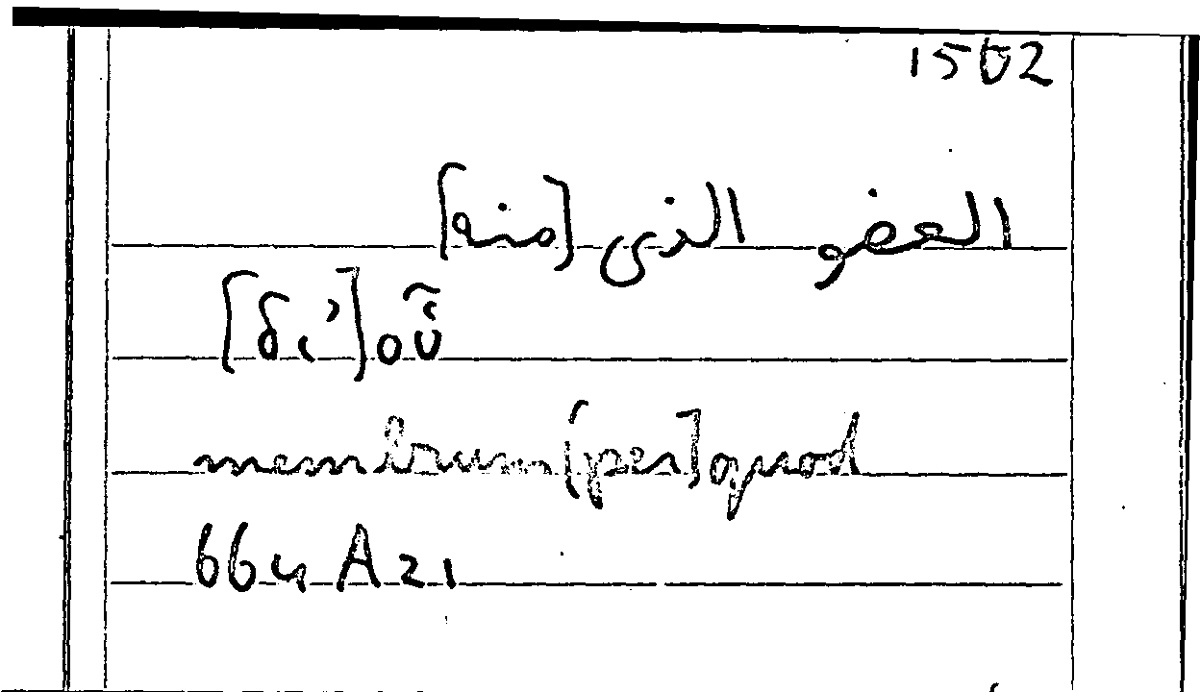 1502
العضو الذى [منه]
[δι’] οὗ
membrum [per] quod
664 A 21